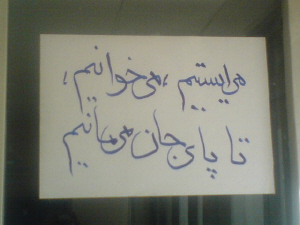 می‌ایستیم ، می‌خوانیم ،
تا پای جان می‌مانیم